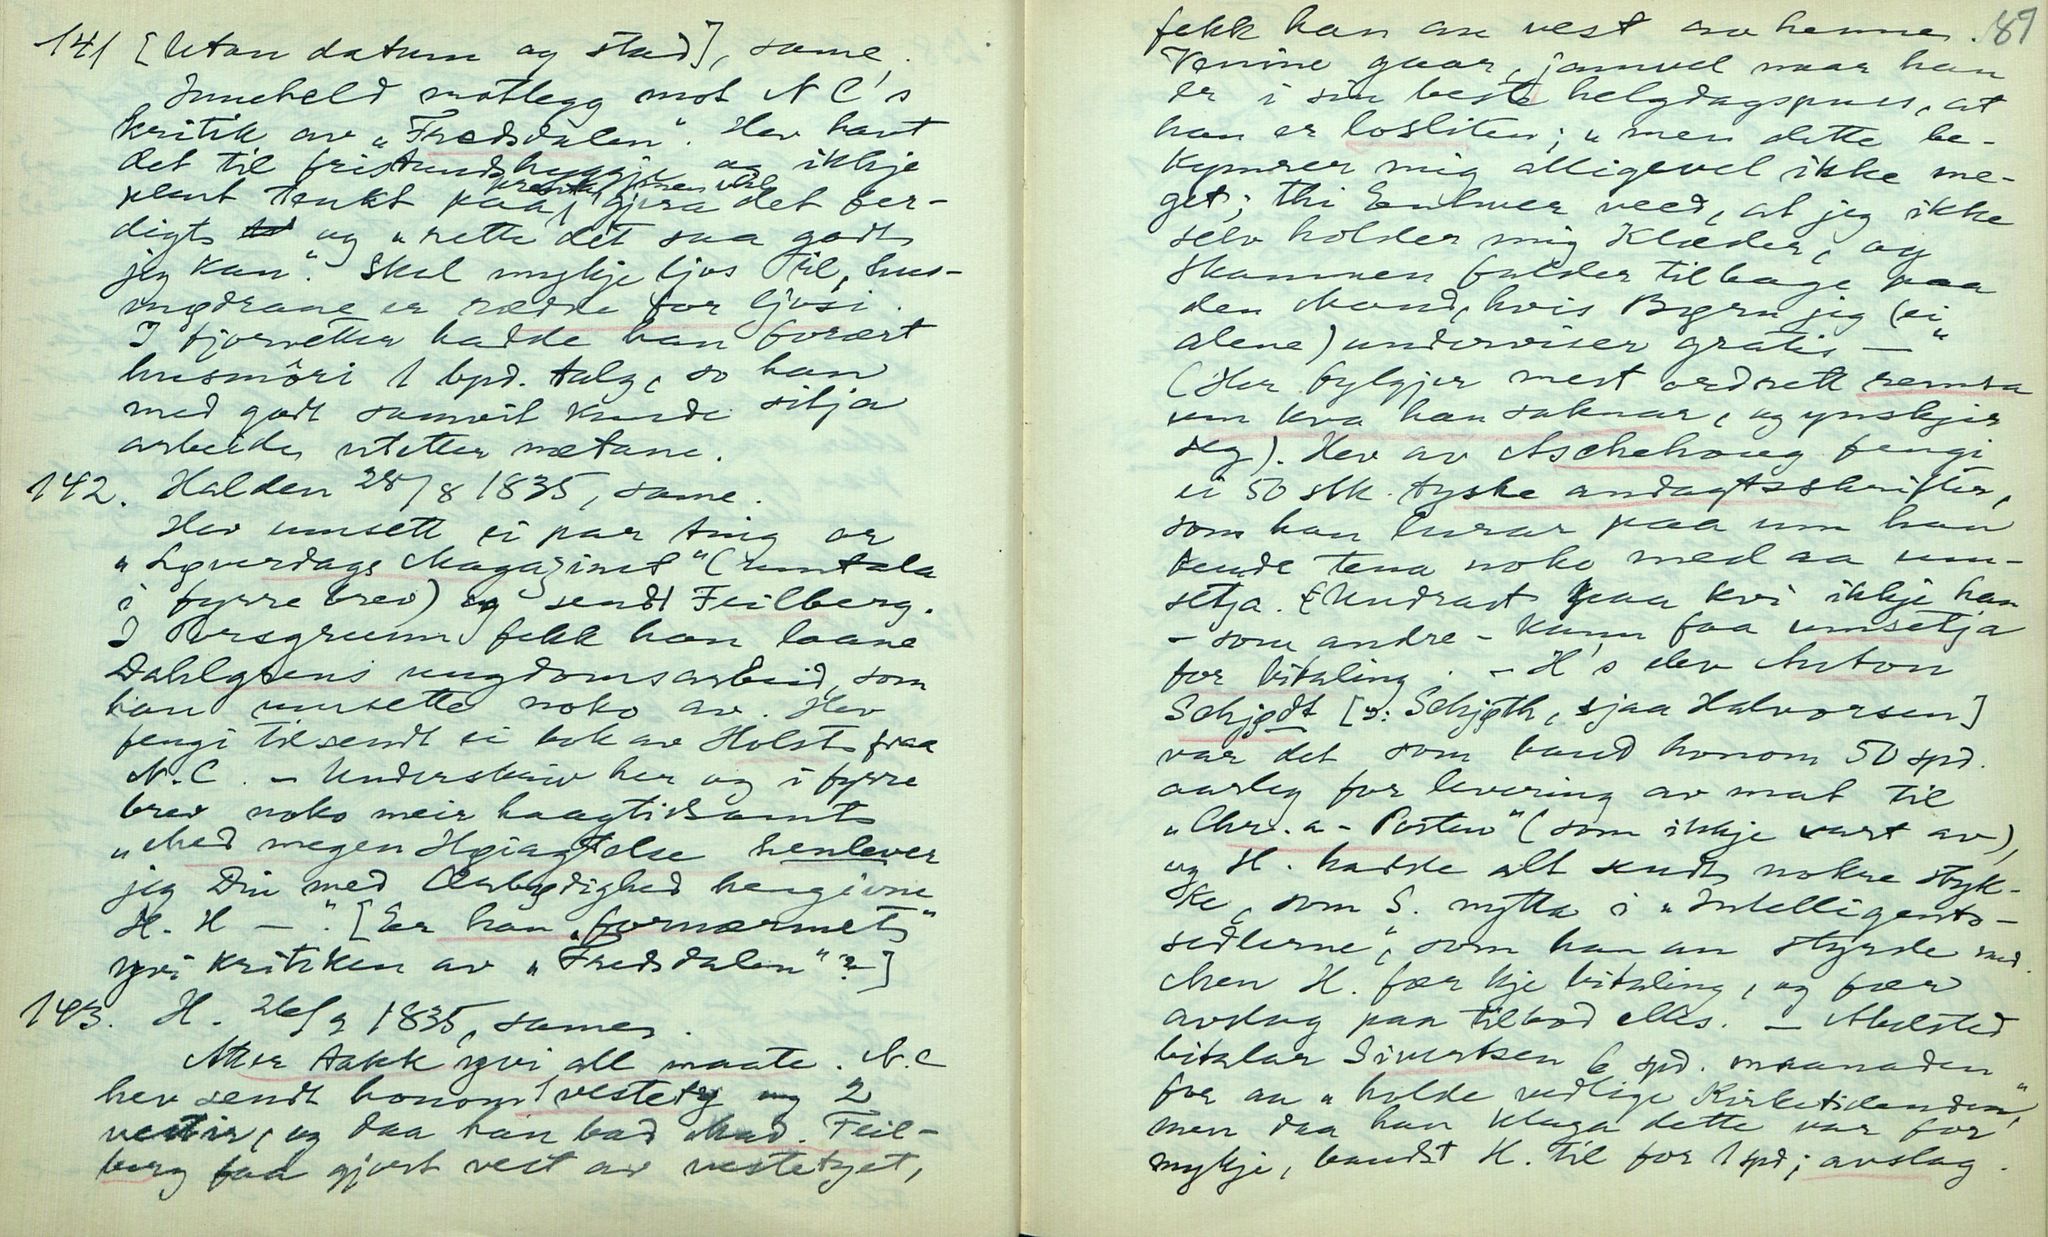 141 [Utan datum og stad], same.
Inneheld motlegg mot N C's
kritik av „Fredsdalen". Hev havt
det til fristundshyggje og ikkje
plent tenkt paa prenta, men vil
gjera det fer-
digt og „rette det saa godt
jeg kan". Skal mykje ljos til, hus-
mødrane er rædde for ljosi.
I fjorvetter hadde han forært
husmôri 1 bpd. talg, so han
med godt samvit kunde sitja
arbeide utetter nætane.
142. Halden 28/8 1835, same.
Hev umsett ei par ting or
„Løverdags Magazinet" (umtala
i fyrre brev) og sendt Feilberg.
I Porsgrunn fekk han laane
Dahlgrens ungdomsarbeid, som
han umsette noko av. Hev
fengi tilsendt ei bok av Holst fraa
N.C. - Underskriv her og i fyrre
brev noko meir haagtidsamt
„Med megen Høiagtelse henlever
jeg Din med Ærbødighed hengivne
H. H —". [Er han „fornærmet"
yvi kritiken av „Fredsdalen"?]
143. H. 26/9 1835, same.
Atter takk yvi all maate. N.C
hev sendt honom 1 vestety og 2
vestir, og daa han bad Mad. Feil-
berg faa gjort vest av vestetyet,
87
fekk han en vest av henne.
Venine gaar, jamvel naar han
er i sin beste helgdagspuss, at
han er losliten; „men dette be-
kymrer mig alligevel ikke me-
get; thi Enhver veed, at jeg ikke
selv holder mig Klæder, og
Skammen falder tilbage paa
den Mand, hvis Børn jeg (ei
alene) underviser gratis —"
(Her fylgjer mest ordrett remsa
um kva han saknar, og ynskjer
seg). Hev av Aschehoug fengi
ei 50 stk. tyske andagtsskrifter,
som han lurar paa um han
kunde tena noko med aa um-
setja. Undrast paa kvi ikkje han
- som andre - kunn faa umsetja
for bitaling. - H's elev Anton
Schjødt [ɔ: Schjøth, sjaa Halvorsen]
var det som baud honom 50 spd.
aarleg for levering av mat til
„Chr.a-Posten" (som ikkje vart av),
og H. hadde alt sendt nokre styk-
ke, som S. nytta i „Intelligents-
sedlerne", som han an styrde med.
Men H. fær kje bitaling, og fær
avslag paa tilbod elles. - Abelsted
bitalar Sivertsen 6 spd. maanaden
for aa „holde vedlige Kirketidenden",
men daa han klaga dette var for
mykje, baudst H. til for 1 spd; avslag.